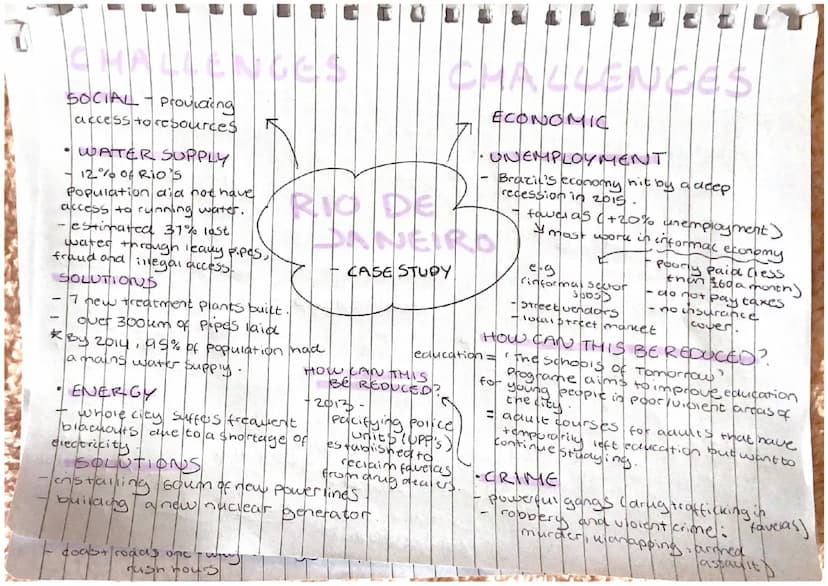 CHALLENGES
SOCIAL - providing
access to resources
• WATER SUPPLY
- 12% of RIO'S
population did not have
access to running water.
- estimated 37% lost
water through leaky pipes,
fraud and illegal access.
SOLUTIONS
- 7 new treatment plants built.
- over 300km of pipes laid
* By 2014, 95% of population had
a mains water supply.
• ENERGY
- whole city suffers frequent
blackouts due to a shortage of
electricity.
SOLUTIONS
- installing 60km of new power lines.
- building a new nuclear generator
RIO DE
JANEIRO
- CASE STUDY
HOW CAN THIS
BE REDUCED?
- 2013 -
pacifying police
units (UPP'S)
established to
reclaim favelas
from drug dealers.
CHALLENGES
ECONOMIC
• UNEMPLOYMENT
- Brazil's economy hit by a deep
recession in 2015.
- favelas (+20% unemployment)
most work in informal economy
e.g
(informal sector
jobs)
- street vendors
- local street market
- poorly paid (less
than £60 a month)
- do not pay taxes
- no insurance
cover.
HOW CAN THIS BE REDUCED?
education = 'The Schools of Tomorrow'
Programe aims to improve education
for young people in poor/violent areas of
the city.
= adult courses for adults that have
temporarily left education but want to
continue studying.
• CRIME
- powerful gangs (drug trafficking in
favelas)
- robbery and violent crime:
murder, kidnapping, armed
assault)
rush hours